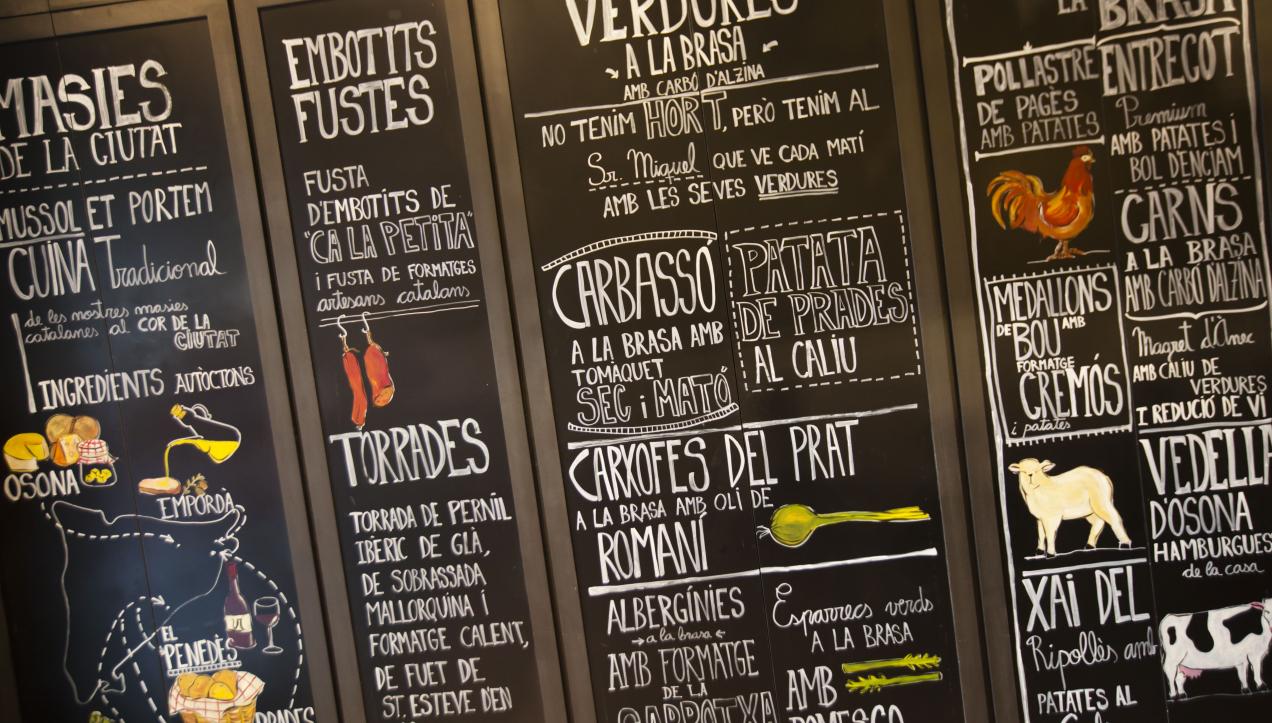 MASIES
DE LA CIUTAT
MUSSOL ET PORTEM
CUINA Tradicional
de les nostres masies
catalanes al COR DE LA
CIUTAT
INGREDIENTS AUTÒCTONS
OSONA
EMPORDÀ
EL
PENEDÈS
PRADES
EMBOTITS
FUSTES
FUSTA
D'EMBOTITS DE
"CA LA PETITA"
i FUSTA DE FORMATGES
artesans catalans
TORRADES
TORRADA DE PERNIL
IBÈRIC DE GLÀ,
DE SOBRASSADA
MALLORQUINA i
FORMATGE CALENT,
DE FUET DE
ST. ESTEVE D'EN
VERDURES
A LA BRASA
AMB CARBÓ D'ALZINA
NO TENIM HORT, PERÒ TENIM AL
Sr. Miquel QUE VE CADA MATÍ
AMB LES SEVES VERDURES
CARBASSÓ
A LA BRASA AMB
TOMAQUET
SEC i MATÓ
PATATA
DE PRADES
AL CALIU
CARXOFES DEL PRAT
A LA BRASA AMB OLI DE
ROMANÍ
ALBERGÍNIES
a la brasa
AMB FORMATGE
DE LA
GARROTXA
Esparrecs verds
A LA BRASA
AMB
ROMESCO
LA
BRASA
POLLASTRE
DE PAGÈS
AMB PATATES
MEDALLONS
DE BOU AMB
FORMATGE
CREMÓS
i patates
XAI DEL
Ripollès amb
PATATES AL
ENTRECOT
Premium
AMB PATATES i
BOL D'ENCIAM
CARNS
A LA BRASA
AMB CARBÓ D'ALZINA
Magret d'Ànec
AMB CALIU DE
VERDURES
I REDUCIÓ DE VÍ
VEDELLA
D'OSONA
HAMBURGUES
de la casa